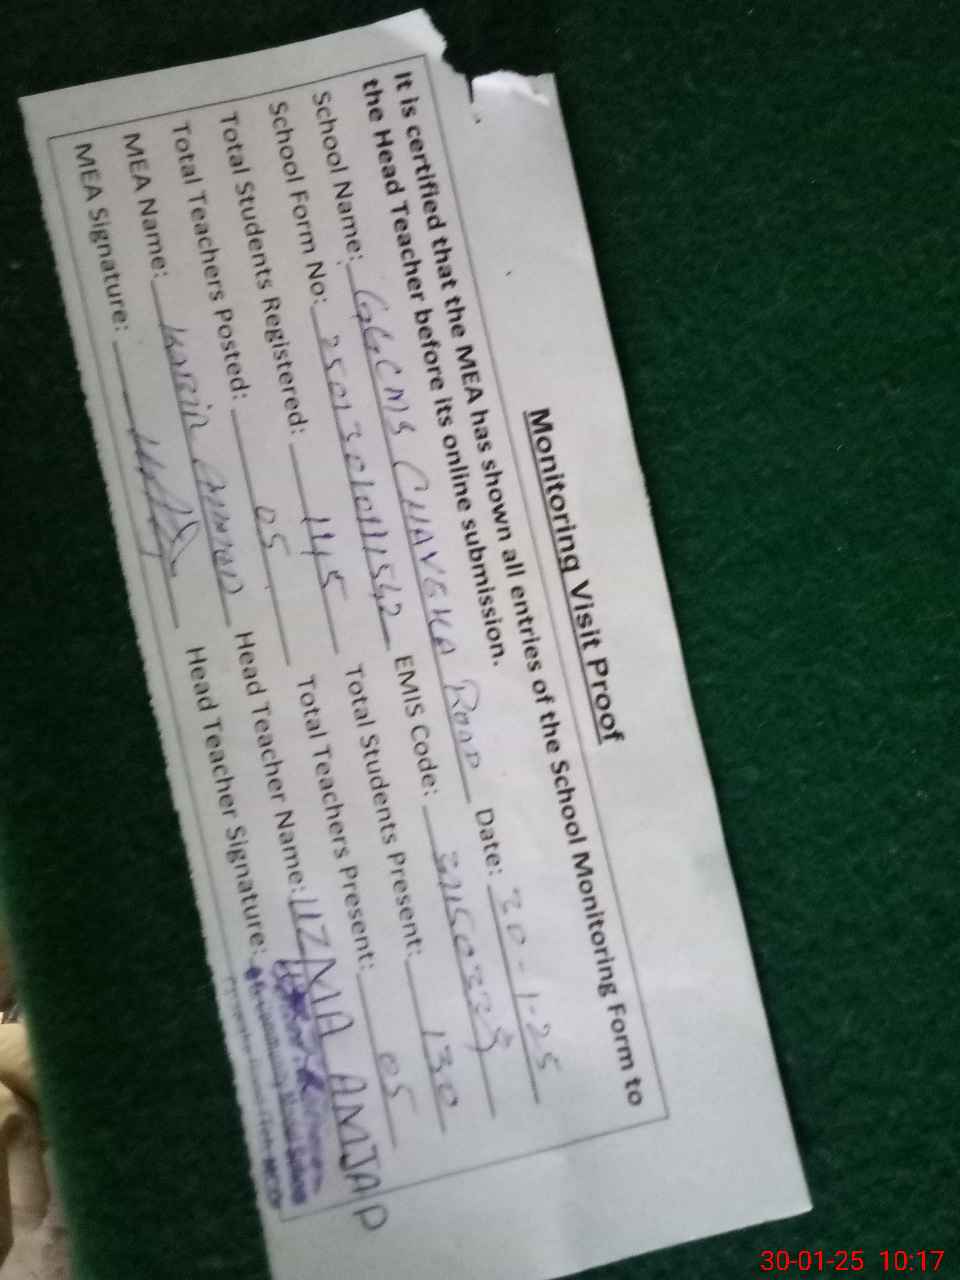 Monitoring Visit Proof
It is certified that the MEA has shown all entries of the School Monitoring Form to
the Head Teacher before its online submission.
School Name: GGCMS CHAVEKA ROAD Date: 30-1-25
School Form No: EMIS Code:
Total Students Registered: 145 Total Students Present: 130
Total Teachers Posted: 05 Total Teachers Present: 05
MEA Name: Head Teacher Name: UZMA AMJAD
MEA Signature: Head Teacher Signature:
30-01-25 10:17